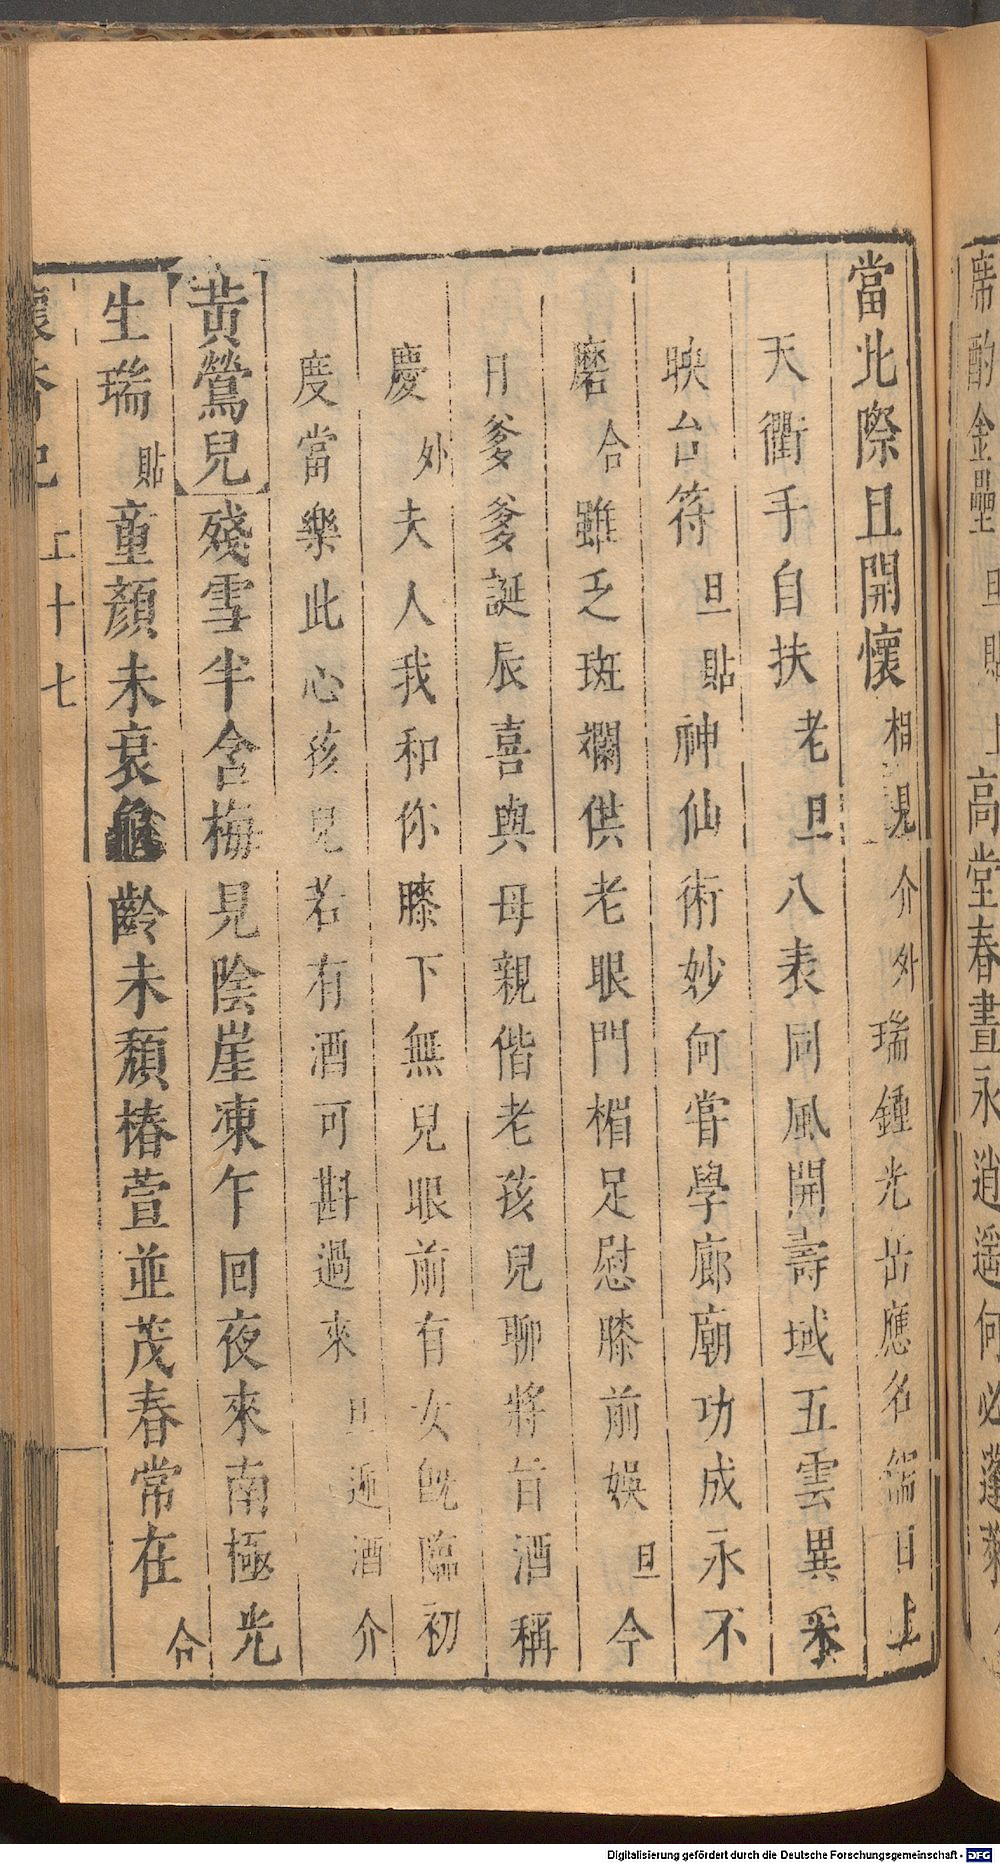 席酌金罍旦貼上高堂春晝永逍遥何必蓬萊
當北際且開懷相見介外瑞鍾光岳應名日上
天衢手自扶老旦八表同風開壽域五雲異釆
映台符旦貼神仙術妙何嘗學廊廟功成永不
磨合雖乏斑斕供老眼門楣足慰膝前娛旦今
日爹爹誕辰喜與母親偕老孩兒聊將旨酒稱
慶外夫人我和你膝下無兒眼前有女旣臨初
度當樂此心孩兒若有酒可斟過來旦遞酒介
黃鶯兒殘雪半含梅見陰崖凍乍回夜來南極光
生瑞貼童顏未衰龜齡未頹椿萱並茂春常在合
懷香記上十七
Digitalisierung gefördert durch die Deutsche Forschungsgemeinschaft - DFG